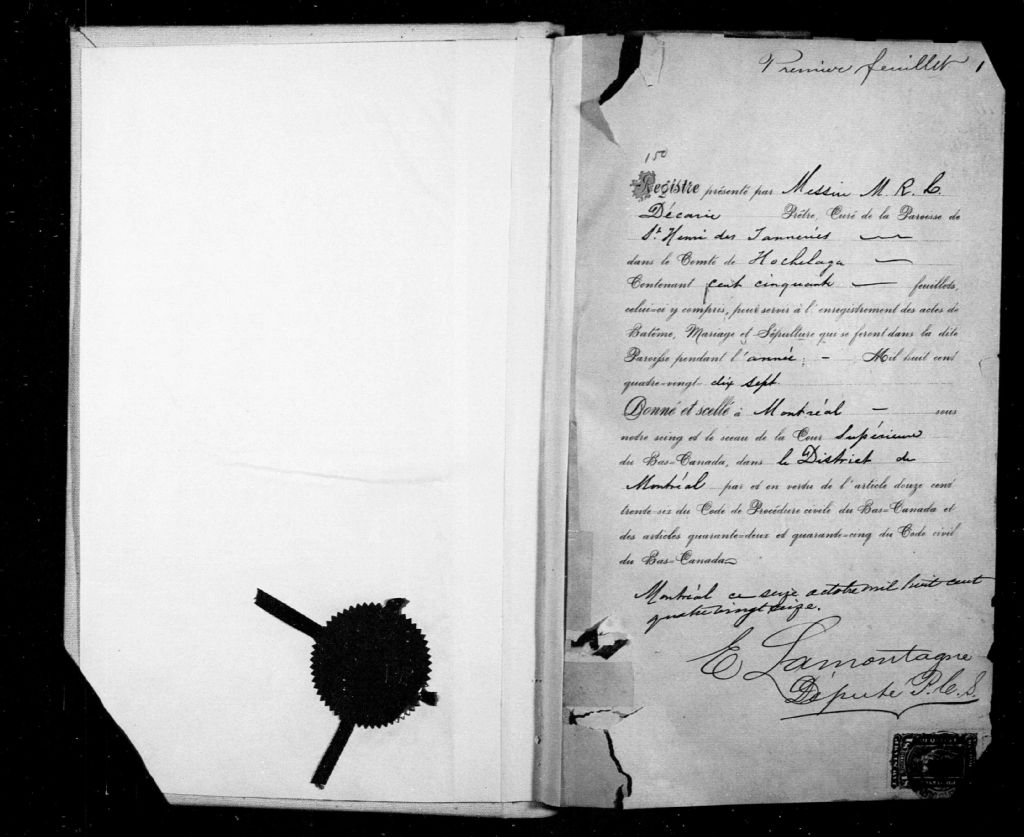 Premier feuillet 1
150
Registre présenté par Messire M. R. C.
Décarie Prêtre, Curé de la Paroisse de
St. Henri des Tanneries
dans le Comté de Hochelaga
Contenant cent cinquante feuillets,
celui-ci y compris, pour servir à l'enregistrement des actes de
Batême, Mariage et Sépulture qui se feront dans la dite
Paroisse pendant l'année, - Mil huit cent
quatre-vingt-dix sept.
Donné et scellé à Montréal - sous
notre seing et le sceau de la Cour Supérieure
du Bas-Canada, dans le District de
Montréal par et en vertu de l'article douze cent
trente-six du Code de Procédure civile du Bas-Canada et
des articles quarante-deux et quarante-cinq du Code civil
du Bas-Canada
Montréal ce seize octobre mil huit cent
quatre vingt seize.
E Lamontagne
Député P.C.S.